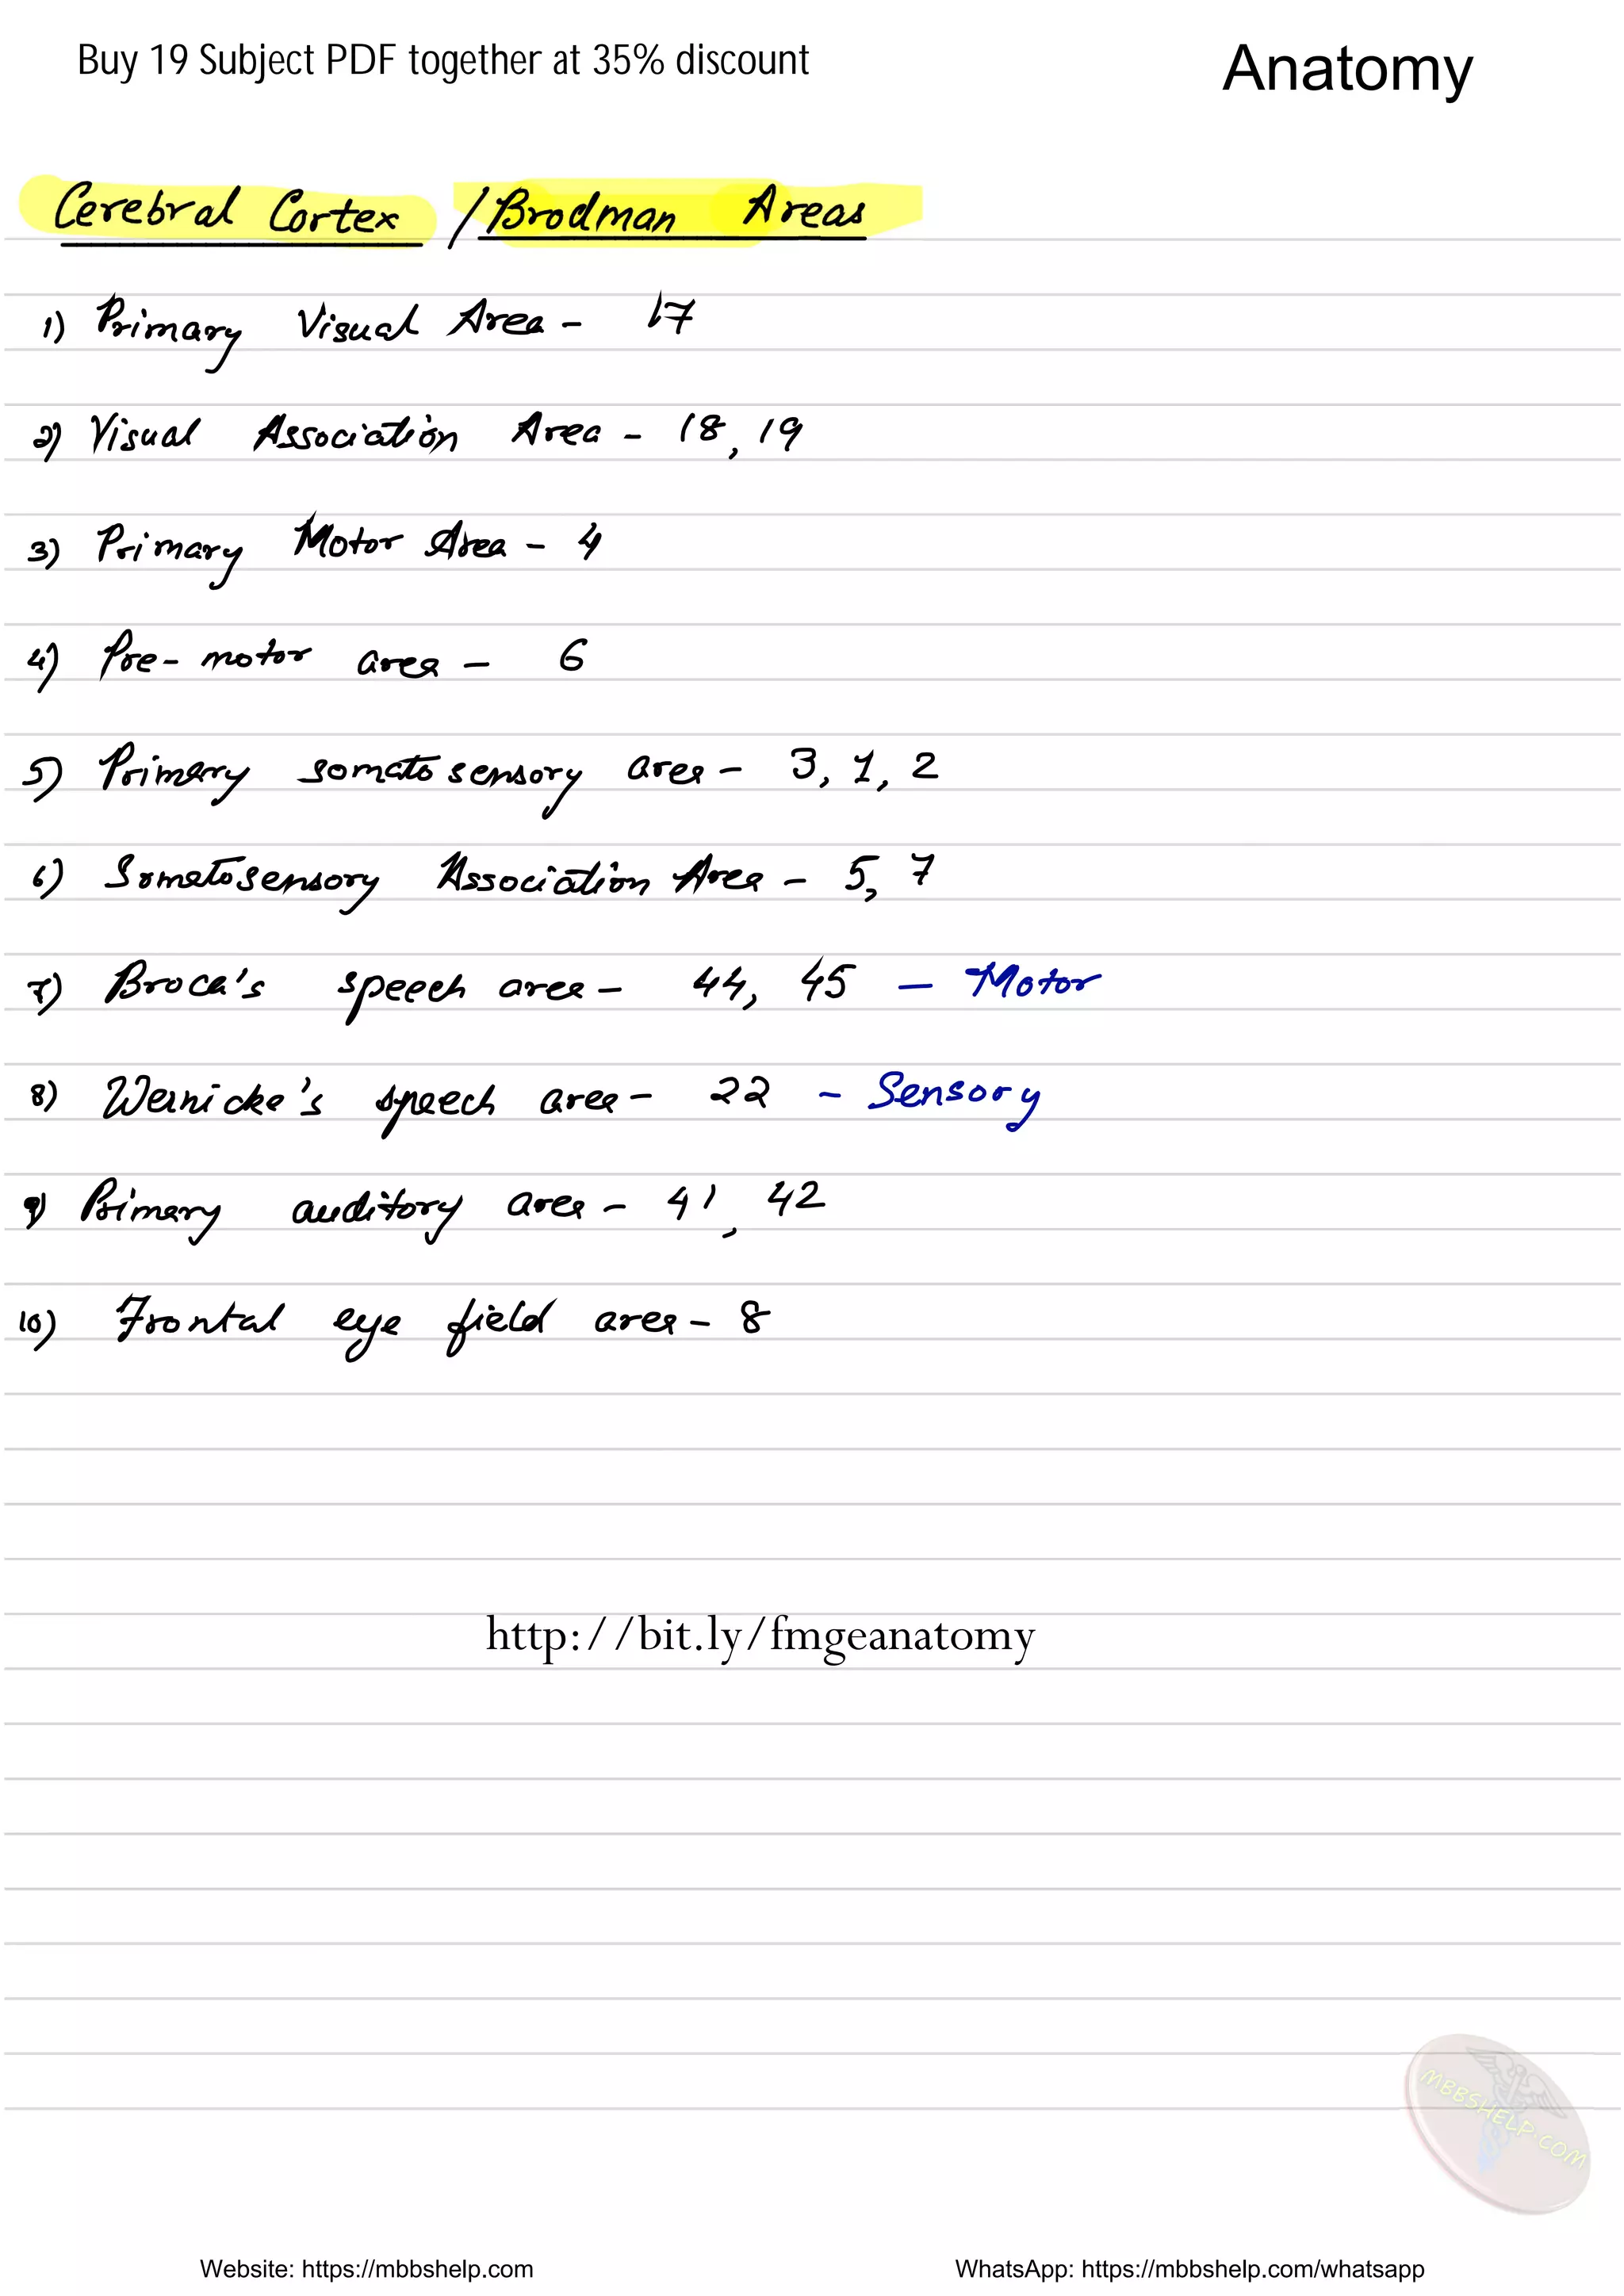 Buy 19 Subject PDF together at 35% discount
Anatomy
Cerebral Cortex / Brodman Areas
1) Primary Visual Area - 17
2) Visual Association Area - 18, 19
3) Primary Motor Area - 4
4) Pre-motor area - 6
5) Primary somatosensory area - 3, 1, 2
6) Somatosensory Association Area - 5, 7
7) Broca's speech area - 44, 45 - Motor
8) Wernicke's speech area - 22 - Sensory
9) Primary auditory area - 41, 42
10) Frontal eye field area - 8
http://bit.ly/fmgeanatomy
MBBSHELP.COM
Website: https://mbbshelp.com
WhatsApp: https://mbbshelp.com/whatsapp